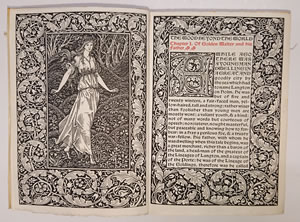 THE WOOD BEYOND THE WORLD
Chapter I. Of Golden Walter and his
Father
AWHILE AGO
THERE WAS
A YOUNG MAN
DWELLING IN
A GREAT AND
goodly city by
the sea which
had to name
Langton on
Holm. He was
but of five and
twenty winters, a fair-faced man, yel-
low-haired, tall and strong; rather wiser
than foolisher than young men are
mostly wont; a valiant youth, & a kind;
not of many words but courteous of
speech; no roisterer, nought masterful,
but peaceable and knowing how to for-
bear: in a fray a perilous foe, & a trusty
war-fellow. His father, with whom he
was dwelling when this tale begins, was
a great merchant, richer than a baron of
the land, a head-man of the greatest of
the Lineages of Langton, and a captain
of the Porte; he was of the Lineage of
the Goldings, therefore was he called